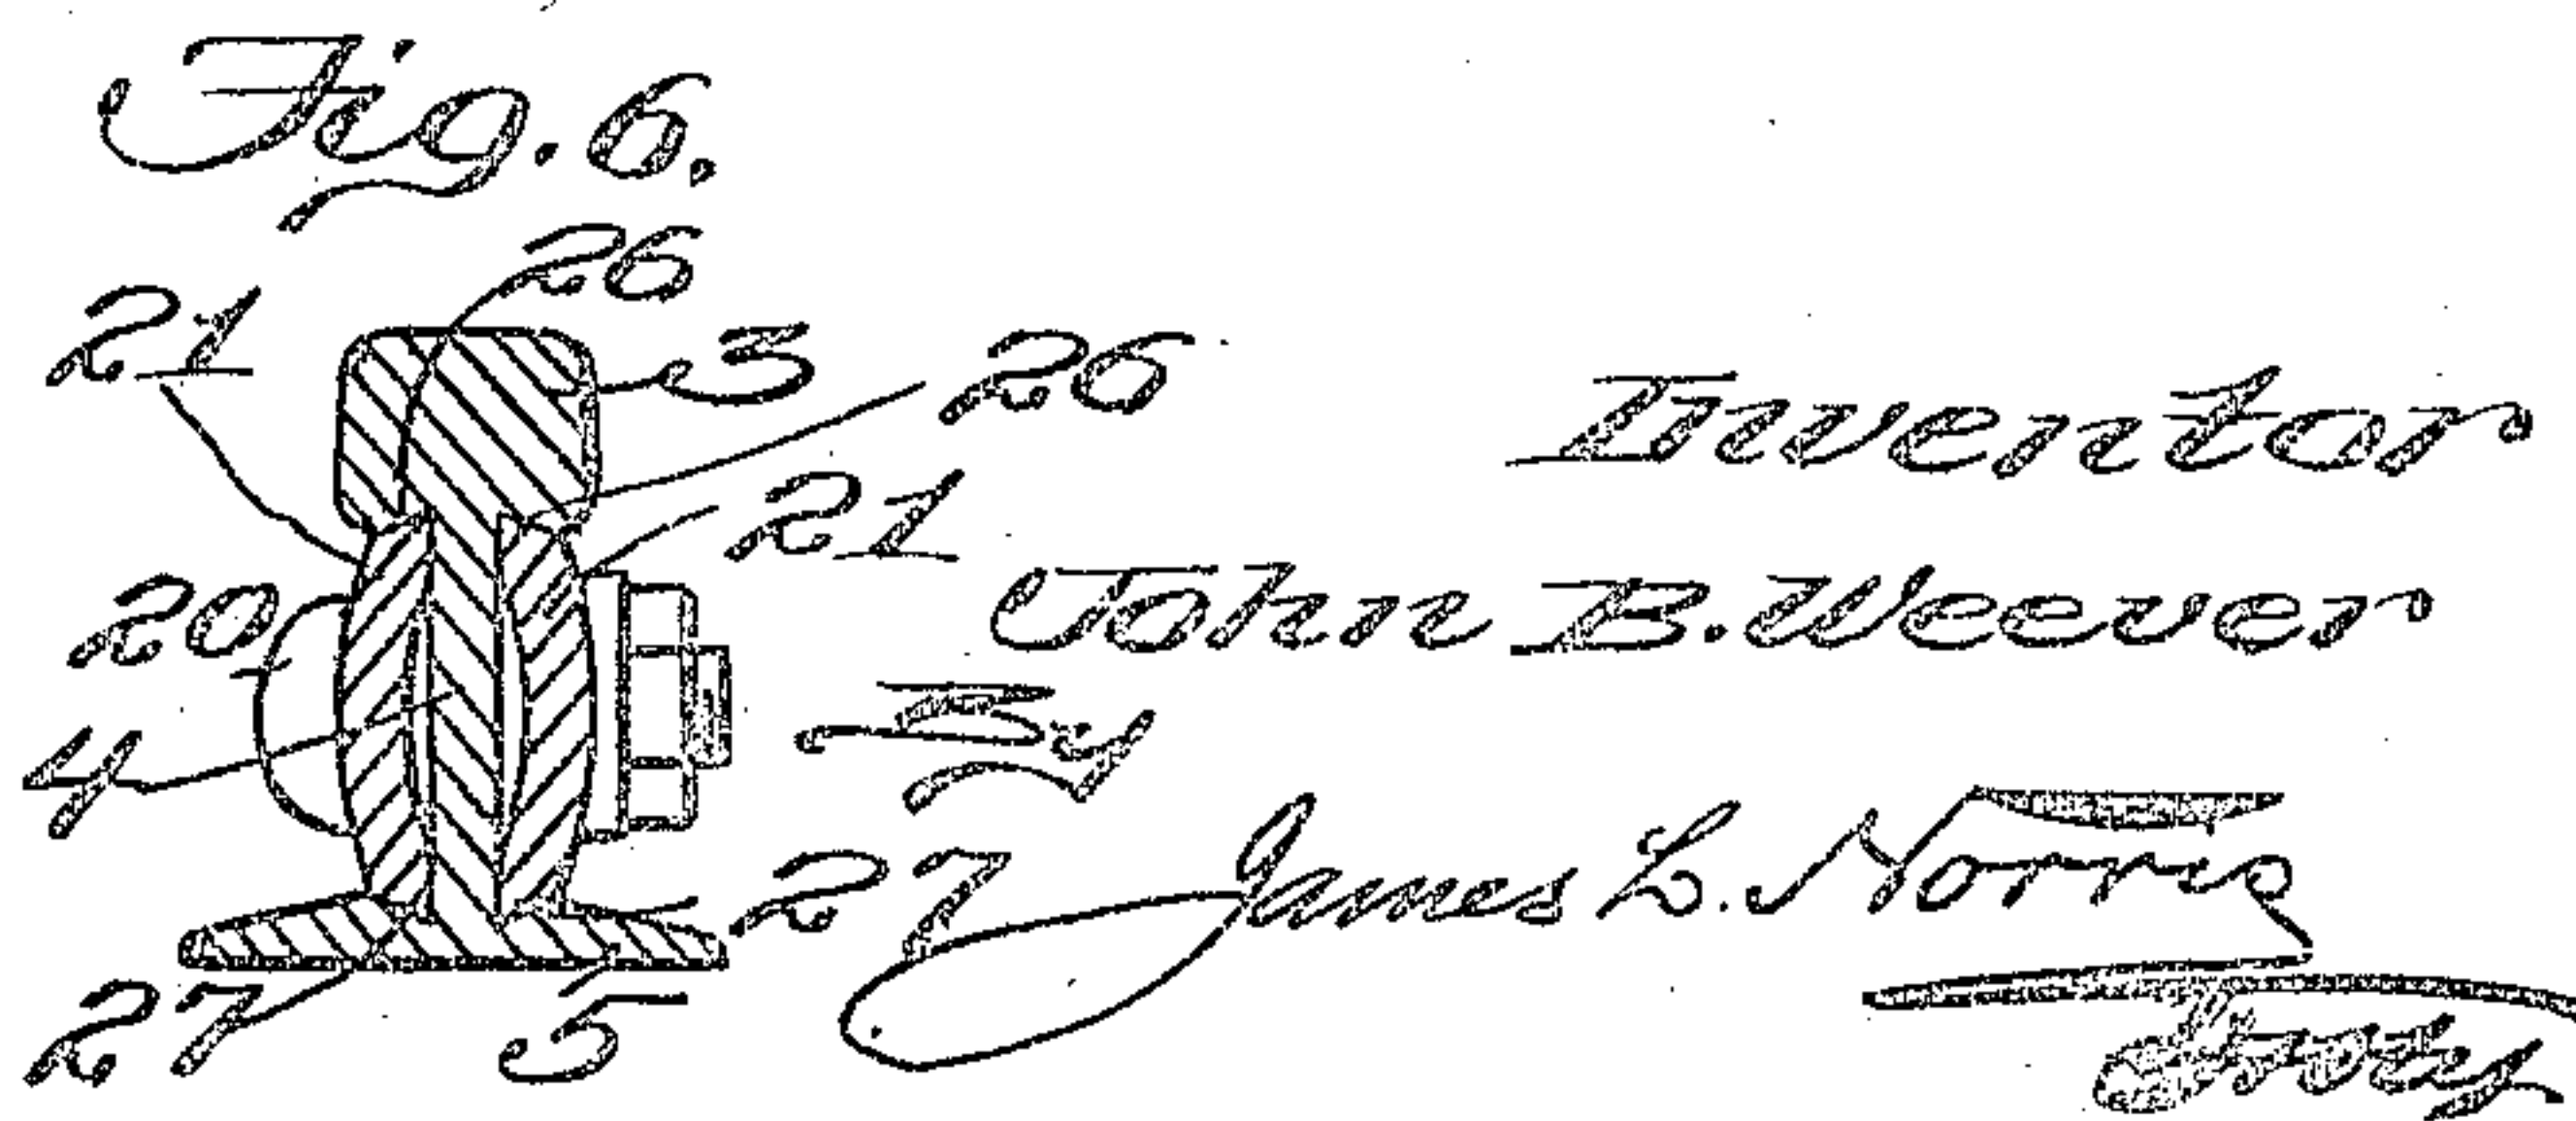 Fig. 6.
26
21
3
26
21
20
4
27
27
5
Inventor
John B. Weever
By
James L. Norris